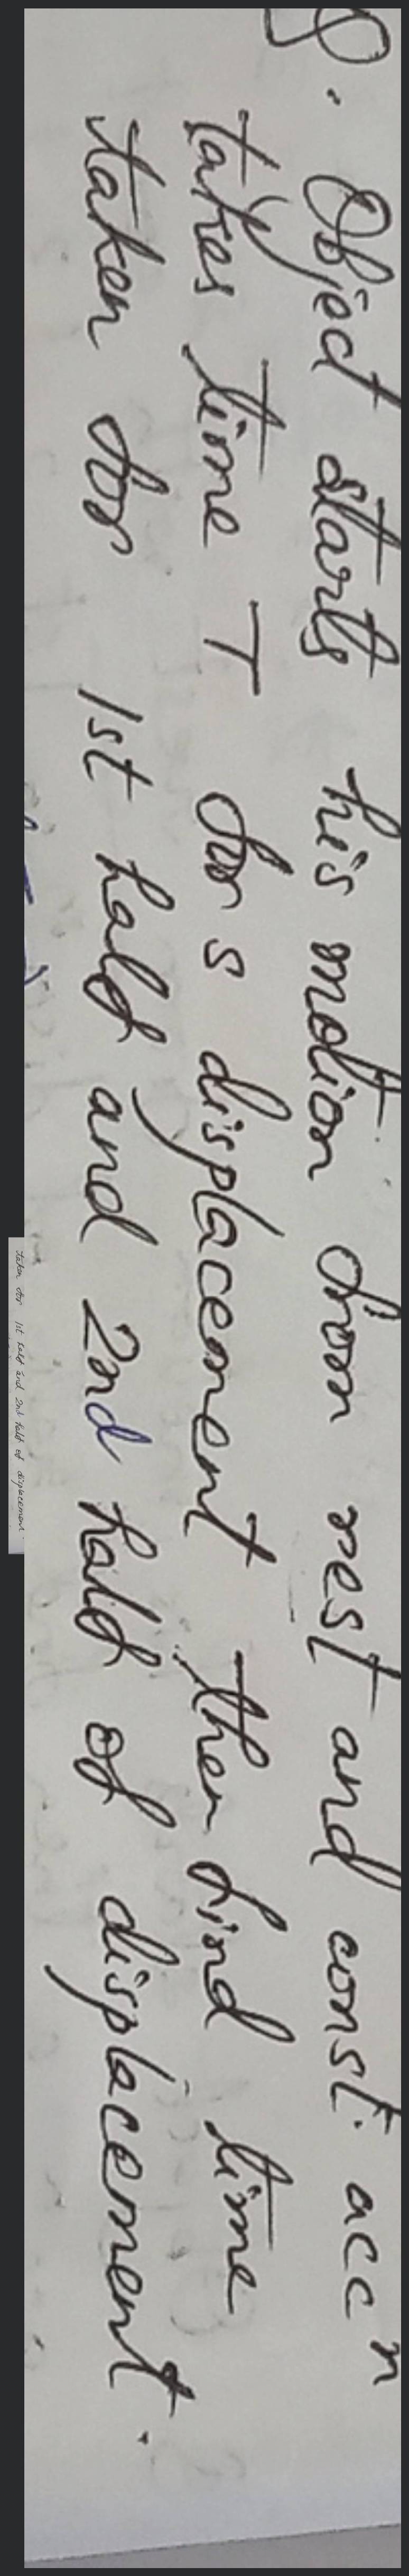 Q. Object starts his motion from rest and const. accn
takes time T for s displacement then find time
taken for 1st half and 2nd half of displacement.
taken for 1st half and 2nd half of displacement.